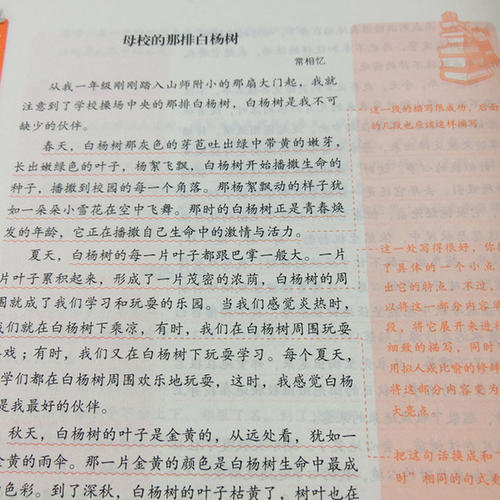 母校的那排白杨树
常相忆
从我一年级刚刚踏入山师附小的那扇大门起，我就
注意到了学校操场中央的那排白杨树，白杨树是我不可
缺少的伙伴。
春天，白杨树那灰色的芽苞吐出绿中带黄的嫩芽，
长出嫩绿色的叶子，杨絮飞飘，白杨树开始播撒生命的
种子，播撒到校园的每一个角落。那杨絮飘动的样子犹
如一朵朵小雪花在空中飞舞。那时的白杨树正是青春焕
发的年龄，它正在播撒自己生命中的激情与活力。
夏天，白杨树的每一片叶子都跟巴掌一般大。一片
片叶子累积起来，形成了一片茂密的浓荫，白杨树的周
围就成了我们学习和玩耍的乐园。当我们感觉炎热时，
我们就在白杨树下乘凉，有时，我们在白杨树周围玩耍
戏；有时，我们又在白杨树下玩耍学习。每个夏天，
学们都在白杨树周围欢乐地玩耍，这时，我感觉白杨
是我最好的伙伴。
秋天，白杨树的叶子是金黄的，从远处看，犹如一
金黄的雨伞。那一片金黄的颜色是白杨树生命中最成
的色彩。到了深秋，白杨树的叶子枯黄了，树叶也在
这一段的描写很成功，后面
的几段也应该这样描写。
这一处写得很好，你
了具体的一个小点
出它的特点。不过，
以将这一部分内容单
段，将它展开来进
细致的描写，同时
用拟人或比喻的修辞
将这部分内容变为
大亮点。
把这句话换成和“
时”相同的句式来